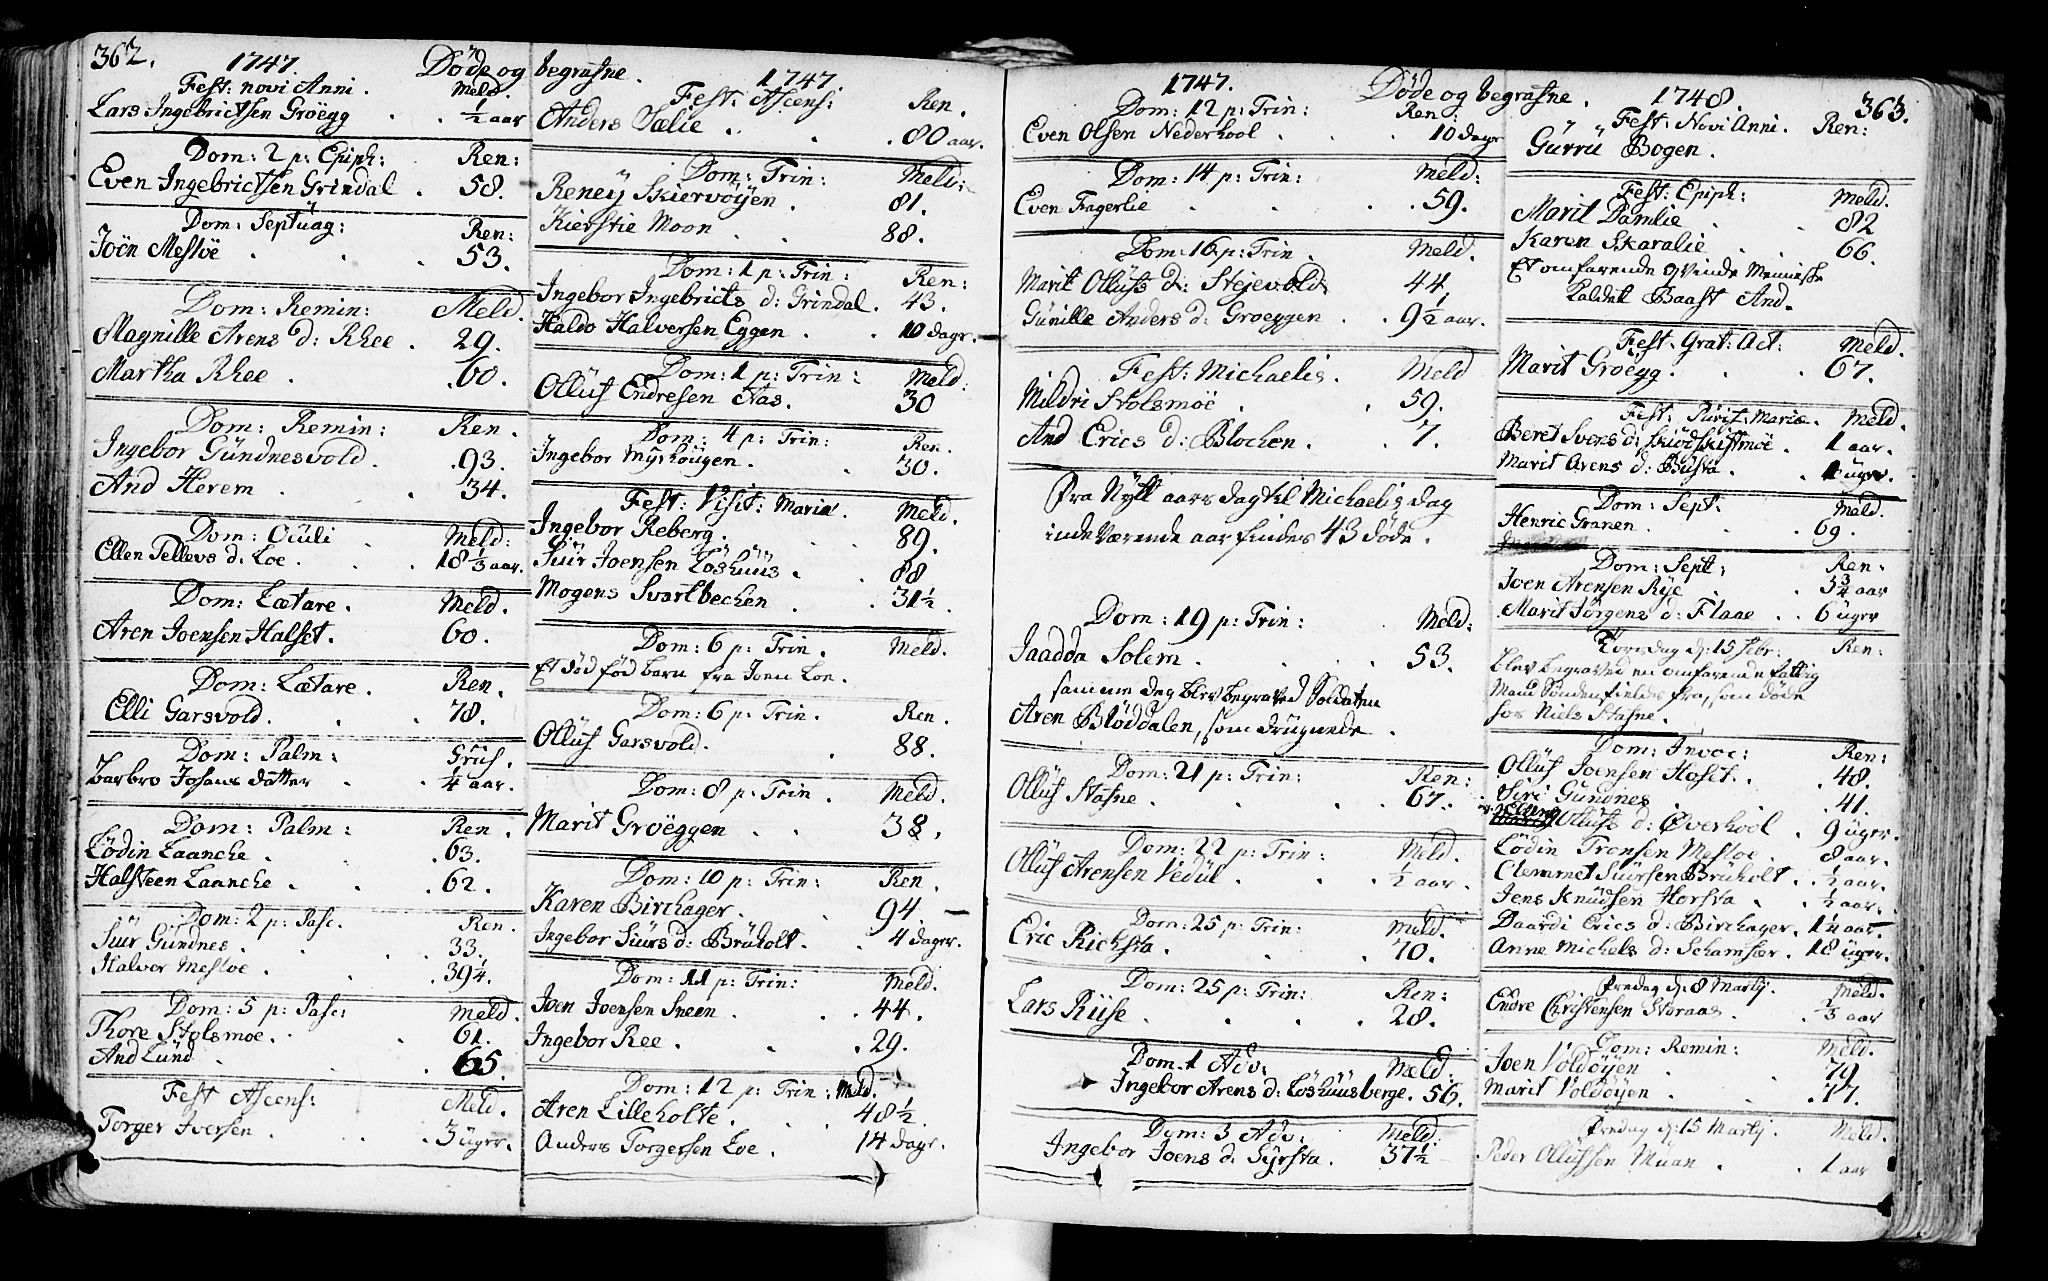 362.
1747 Døde og begrafne. 1747
Fest: novi Anni. Meld.
Lars Ingebrictsen Gröegg . . ½ aar
Dom: 2 p: Epiph: Ren:
Even Ingebrictsen Grindal . 58.
Dom: Septuag: Ren:
Joën Mesloë . . . 53.
Dom: Remin: Meld.
Magnille Arens d: Rhee . 29.
Martha Rhee . . 60.
Dom: Remin: Ren.
Ingebor Gündnesvold . . 93.
And Herem . . 34.
Dom: Oculi . Meld:
Ellen Tellevs d. Loe . . 18⅓ aar.
Dom: Lætare . Meld.
Aren Joensen Halset. 60.
Dom: Lætare. Ren.
Elli Garsvold. . . 78.
Dom: Palm: Grüs.
Barbro Johans datter . ¼ aar.
Dom: Palm: Ren.
Lödin Laanche . . 63.
Halsteen Laanche . . 62.
Dom: 2 p: Pasc. Ren.
Siür Gündnes . . . 33.
Halvor Mesloe . . 39¼.
Dom: 5 p: Pasc: Meld.
Thore Stolsmoe . . 61.
And Lünd . . 65.
Fest Ascens: Meld.
Torger Iversen . . . 3 ügrr.
Fest: Ascens: Ren.
Anders Sælie . . . 80 aar.
Dom: Trin: Meld:
Reney Skiervöyen . 81.
Kierstie Moon . . 88.
Dom: 1 p: Trin: Ren:
Ingebor Ingebricts d: Grindal. 43.
Haldo Halversen Eggen . . 10 dagr.
Dom: 1 p: Trin: Meld:
Ollüf Endresen Aas. 30
Dom: 4 p: Trin: Ren.
Ingebor Myrhougen. . 30.
Fest: Visit: Mariæ. Meld.
Ingebor Reberg. . 89.
Siür Joensen Löshüüs . . 88
Mogens Svartbechen . . 31½.
Dom: 6 p: Trin. Meld.
Et död föd barn fra Joen Loe.
Dom: 6 p: Trin. Ren.
Ollüf Garsvold. . 88.
Dom: 8 p: Trin. Meld.
Marit Gröeggen . . 38.
Dom: 10 p: Trin: Ren.
Karen Birchager. . 94.
Ingebor Siürs d: Brüholt. . 4 dager.
Dom: 11 p: Trin: Meld.
Joen Joensen Sneen . . . 44.
Ingebor Ree . . . 29.
Dom: 12 p: Trin: Meld.
Aren Lilleholte . . . 48½
Anders Torgersen Loe . 14 dagr.
1747. Döde og begrafne. 1748. 363.
Dom: 12 p: Trin: Ren:
Even Olsen Nederhool . . 10 dagr
Dom: 14 p: Trin: Meld:
Even Fagerlie . . . . 59.
Dom: 16 p: Trin. Meld.
Marit Ollüfs d: Stejevold. 44.
Günille Anders d: Groeggen . . 9½ aar.
Fest: Michaelis. Meld
Mildri Stolsmöe . . 59.
And Erics d: Blochen. . 7.
Fra Nytt aars dag til Michaelis dag
indeværende aar findes 43 döde.
Dom: 19 p: Trin: . Meld:
Jaadda Solem . . . 53.
samme dag blev begraved Soldaten
Aren Blöddalen, som drugnede .
Dom: 21 p: Trin: Ren:
Ollüf Stafne . . . . 67.
Dom: 22 p: Trin: Meld.
Ollüf Arensen Vedül . . . ½ aar.
Dom: 25 p: Trin: Meld.
Eric Richsta. . . . 70.
Dom: 25 p: Trin: Ren:
Lars Rüse . . . . 28.
Dom. 1 Adv: Meld:
Ingebor Arens d: Löshüüsberge. 56.
Dom: 3 Adv: Meld:
Ingebor Joens d. Syrsta. . 37½
Fest: Novi Anni. Ren:
Gürrü Bogen.
Fest: Epiph: Meld.
Marit Damlie . . 82
Karen Skaralie . . 66.
Et omfarende qvinde Menniske
kaldet Baast And.
Fest. Grat: Act: Meld.
Marit Gröegg. . . 67.
Fest: Purit: Mariæ. Meld.
Beret Svens d: Skiödskiftmoe . 1 aar.
Marit Arens d: Büsta . . 1 ügr.
Dom: Sept: Meld.
Henric Granen . . 69.
Dom: Sept: Ren:
Joen Arensen Rye . . 3¾ aar
Marit Jörgens d: Flaae . . 6 üger
Torsdag d: 15 Febr: Ren:
blev begraved en omfarende fattig
Mand Söndenfields fra, som döde
hos Niels Stafne.
Dom: Invoc: Ren:
Ollüf Joensen Hoset. . 48.
Siri Gundnes . 41.
Ollüfs d: Överhool . 9 üger.
Lödin Tronsen Mesloe . 8 aar.
Clemmet Siürsen Brüholt . . ½ aar.
Jens Knüdsen Horsta . . ½ aar.
Daardi Erics d: Birchager. 1¼ aar.
Anne Michels d: Schamfær . 18 üger.
Fredag d: 8 Martij. Meld.
Endre Christensen Storaas . . ⅓ aar
Dom: Remin: Meld.
Joen Voldöyen . . 79.
Marit Voldöyen . . . 77.
Fredag d: 15 Martij. Meld.
Peder Ollüfsen Muan . . 1 aar